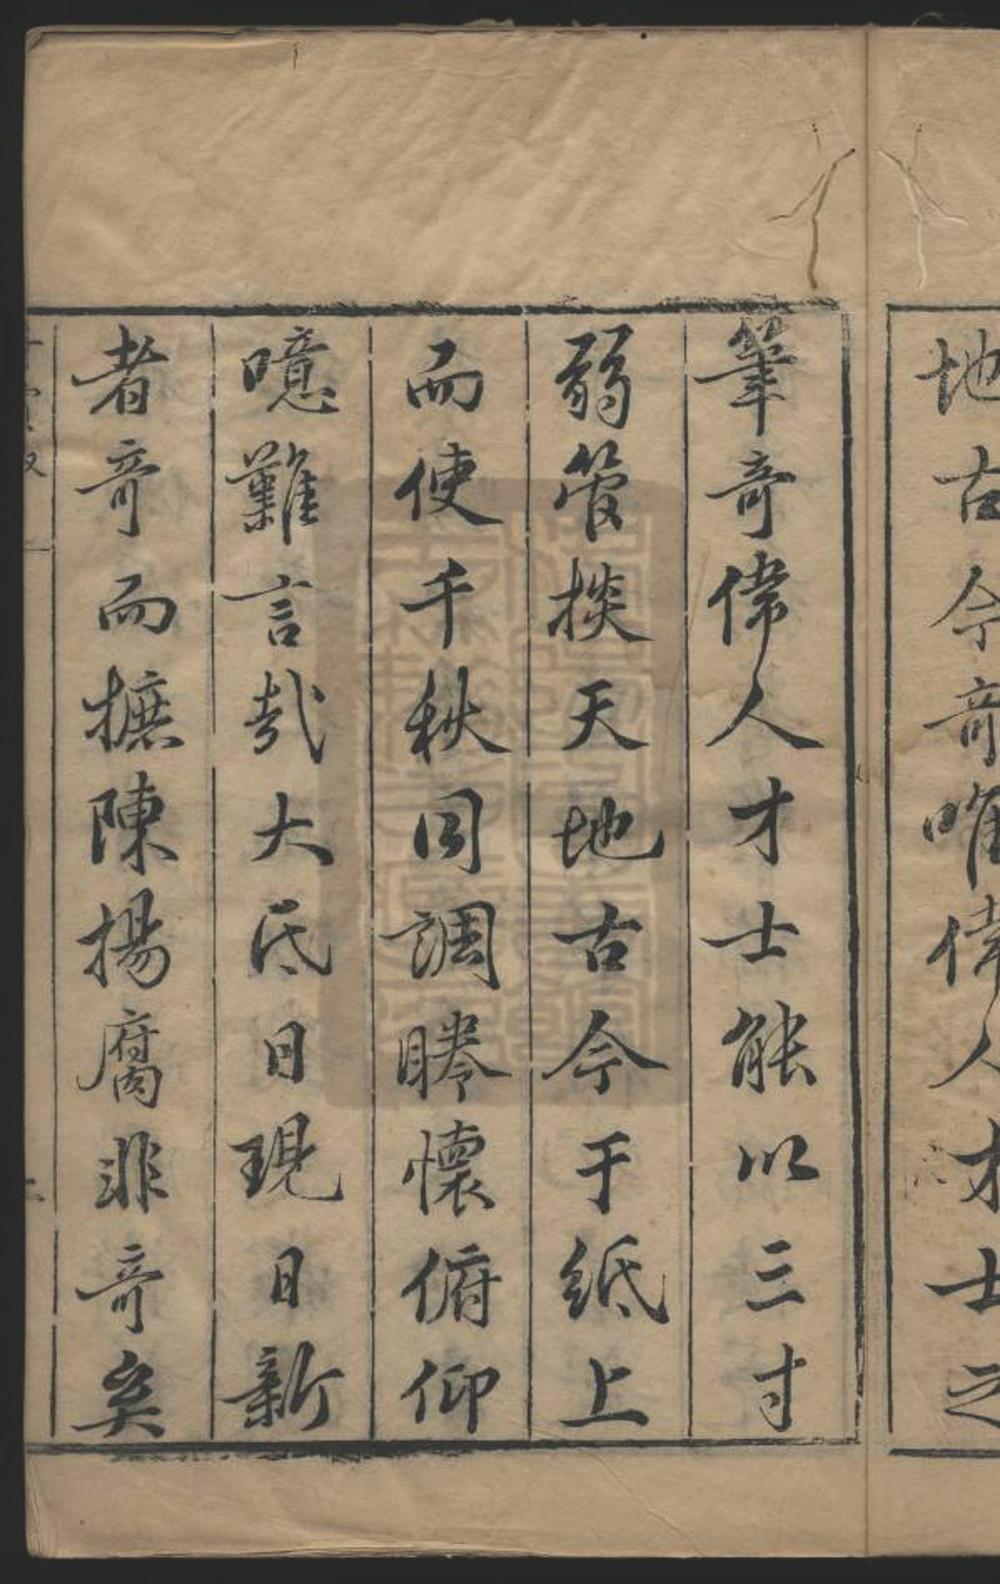 地古今奇唯偉人才士之
筆奇偉人才士能以三寸
弱管掞天地古今于紙上
而使千秋同調睠懷俯仰
噫難言哉大氐日現日新
者奇而摭陳揚腐非奇矣